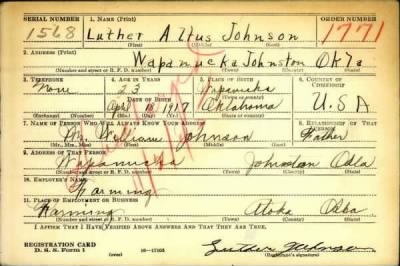 SERIAL NUMBER 1. NAME (Print) ORDER NUMBER
1568 Luther Altus Johnson 1771
(First) (Middle) (Last)
2. ADDRESS (Print)
Wapanucka Johnston Okla
(Number and street or R. F. D. number) (Town) (County) (State)
3. TELEPHONE 4. AGE IN YEARS 5. PLACE OF BIRTH 6. COUNTRY OF CITIZENSHIP
None 23 Wapanucka
DATE OF BIRTH (Town or county)
1917 Oklahoma U.S.A
(Exchange) (No.) (Mo.) (Day) (Yr.) (State or country)
7. NAME OF PERSON WHO WILL ALWAYS KNOW YOUR ADDRESS 8. RELATIONSHIP OF THAT PERSON
Mr. William Johnson Father
(Mr., Mrs., Miss) (First) (Middle) (Last)
9. ADDRESS OF THAT PERSON
Wapanucka Johnston Okla
(Number and street or R. F. D. number) (Town) (County) (State)
10. EMPLOYER'S NAME
Farming
11. PLACE OF EMPLOYMENT OR BUSINESS
Farming Atoka Okla
(Number and street or R. F. D. number) (Town) (County) (State)
I AFFIRM THAT I HAVE VERIFIED ABOVE ANSWERS AND THAT THEY ARE TRUE.
REGISTRATION CARD
D. S. S. Form 1 Luther Johnson
(Registrant's signature)